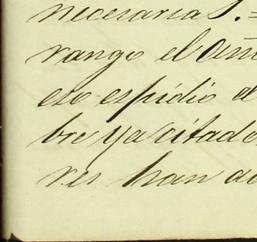 necesarias. =
rango el Am
eso espidio el
bre ya citado
res han ac